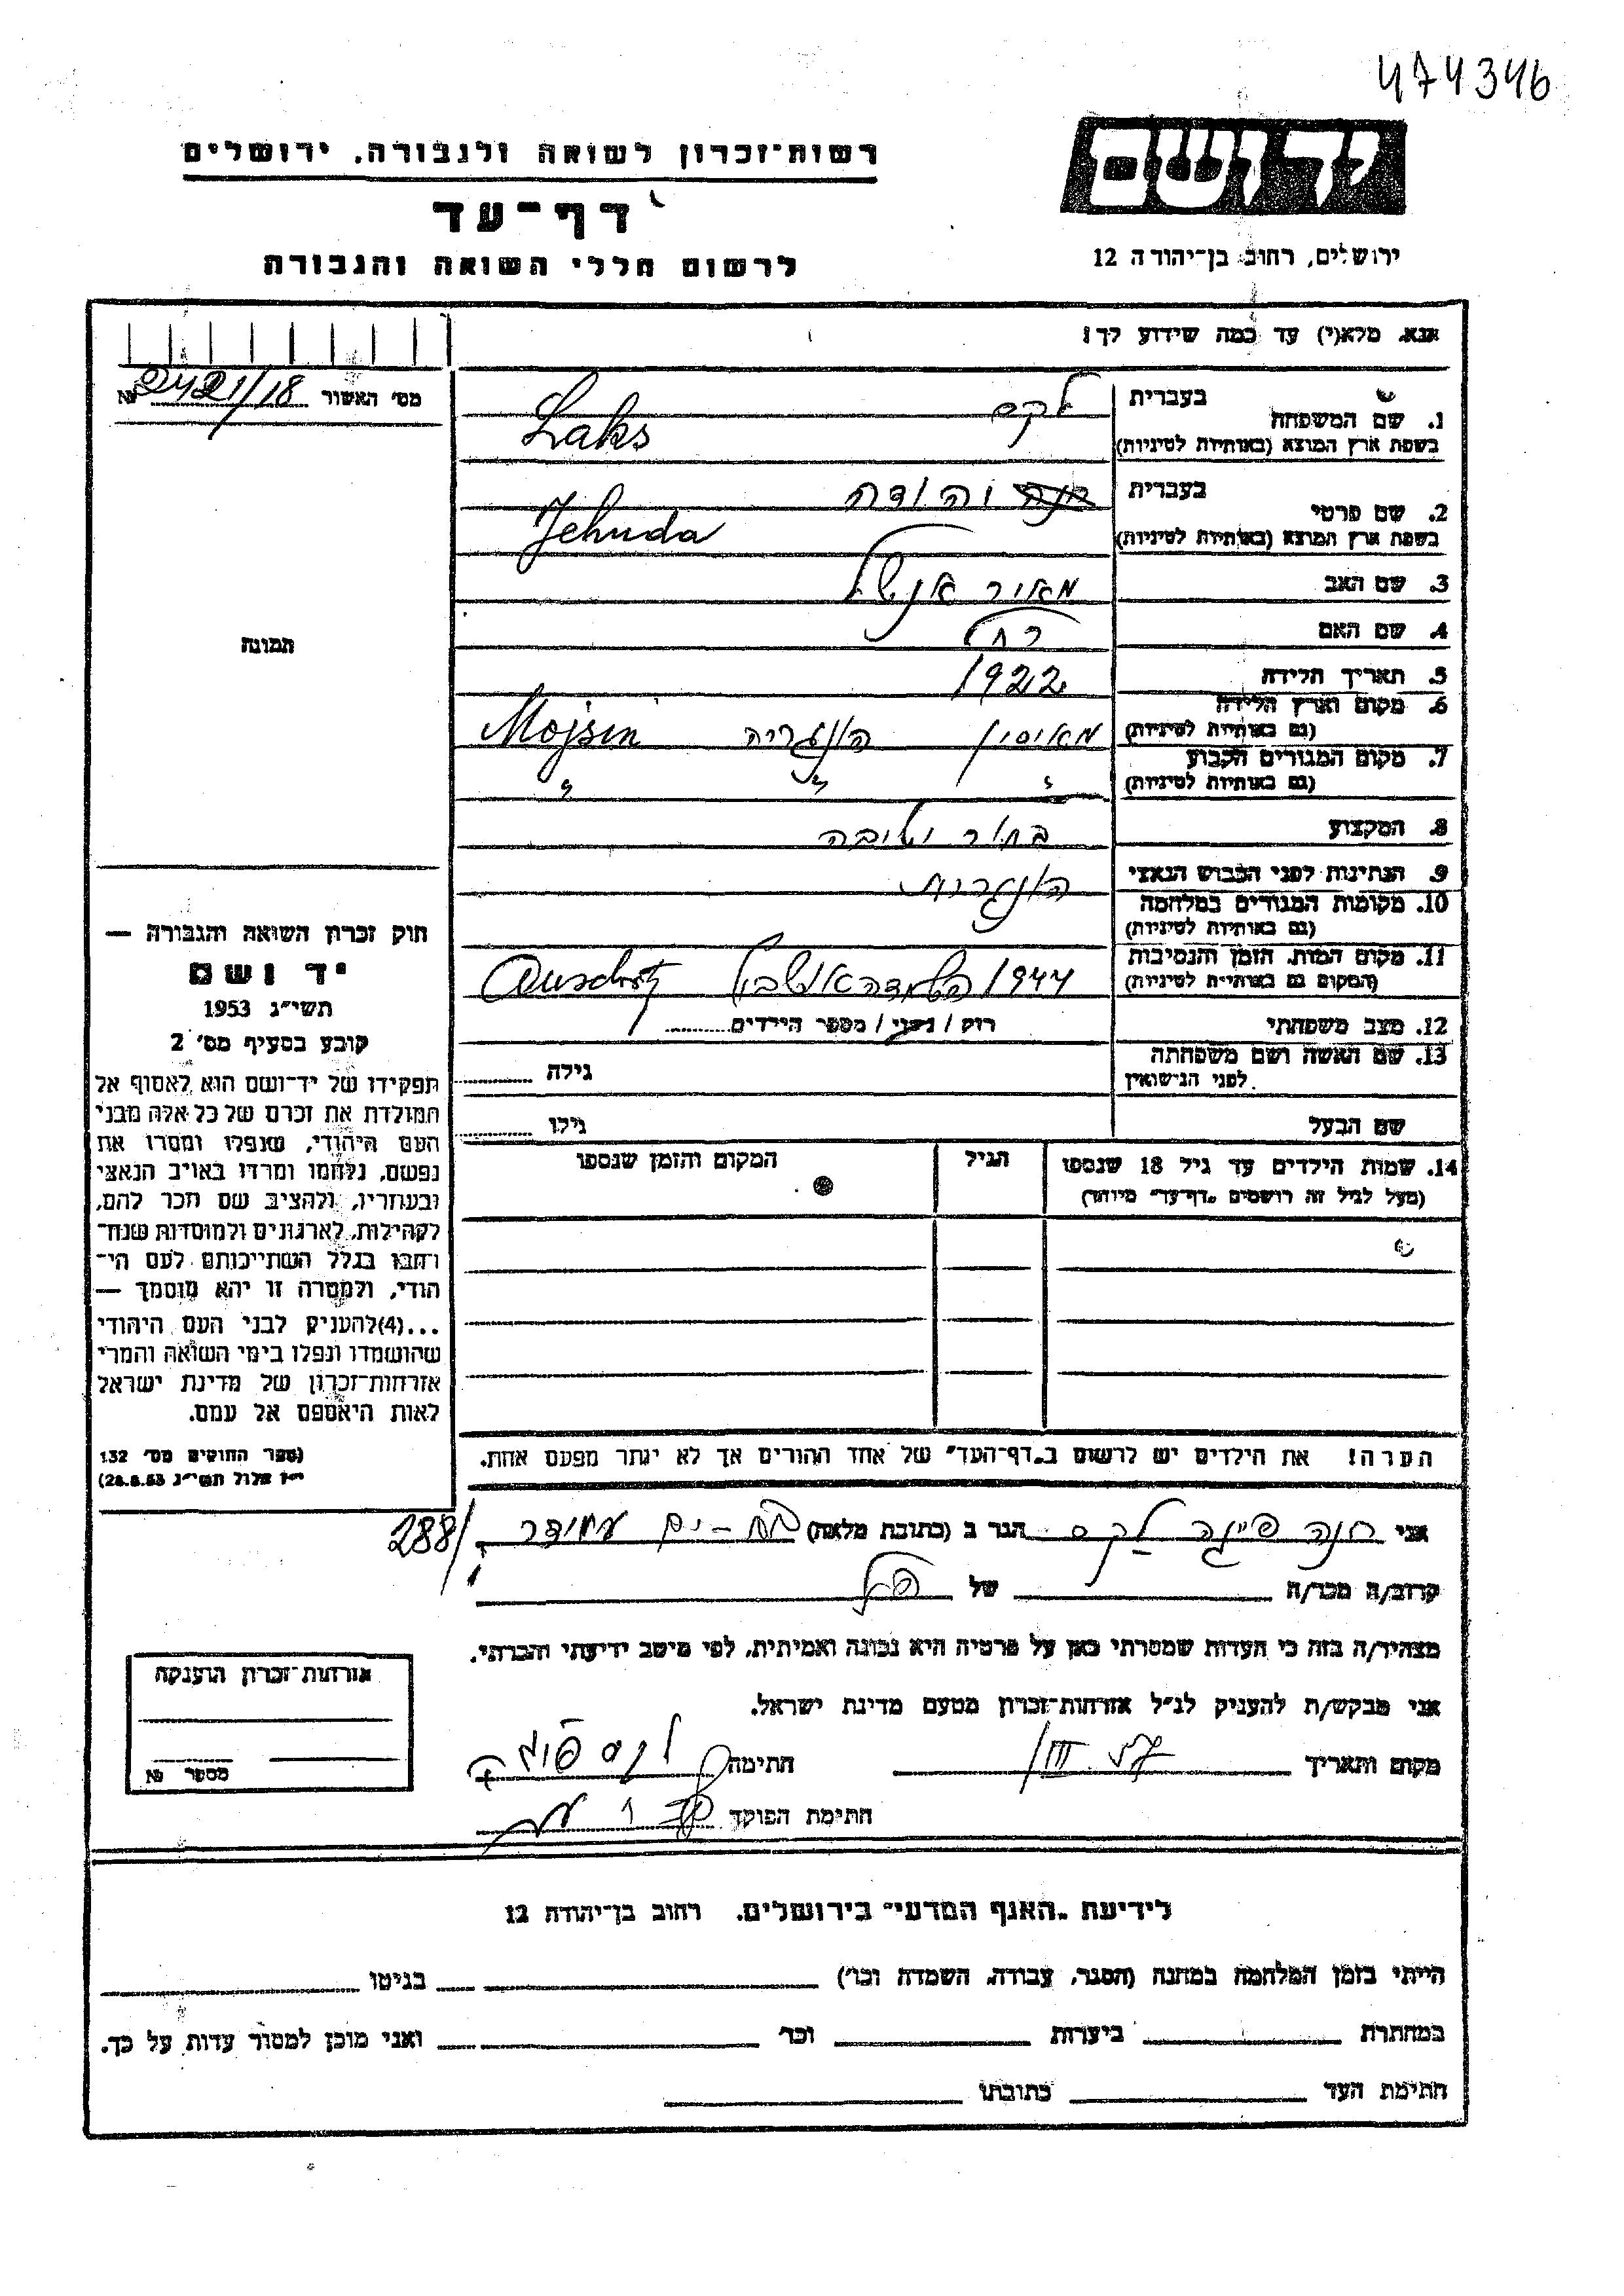 474346
יד ושם
רשות־זכרון לשואה ולגבורה, ירושלים
דף־עד
לרשום חללי השואה והגבורה
ירושלים, רחוב בן־יהודה 12
אנא, מלא(י) עד כמה שידוע לך!
מס' האשור 2421/18 №
1. שם המשפחה
בעברית לקס
בשפת ארץ המוצא (באותיות לטיניות) Laks
2. שם פרטי
בעברית יהודה
בשפת ארץ המוצא (באותיות לטיניות) Jehuda
3. שם האב מאיר אנשל
4. שם האם רחל
5. תאריך הלידה 1922
6. מקום וארץ הלידה
(גם באותיות לטיניות) מאיסין הונגריה Mojsin
7. מקום המגורים הקבוע
(גם באותיות לטיניות) " " "
8. המקצוע בחור ישיבה
9. הנתינות לפני הכבוש הנאצי הונגרית
10. מקומות המגורים במלחמה
(גם באותיות לטיניות)
11. מקום המות, הזמן והנסיבות
(המקום גם באותיות לטיניות) 1944
12. מצב משפחתי רוק / נשוי / מספר הילדים
13. שם האשה ושם משפחתה
לפני הנישואין גילה
שם הבעל גילו
14. שמות הילדים עד גיל 18 שנספו
(מעל לגיל זה רושמים „דף־עד" מיוחד)
הגיל
המקום והזמן שנספו
הערה! את הילדים יש לרשום ב„דף־העד" של אחד ההורים אך לא יותר מפעם אחת.
תמונה
חוק זכרון השואה והגבורה —
יד ושם
תשי"ג 1953
קובע בסעיף מס' 2
תפקידו של יד־ושם הוא לאסוף אל
המולדת את זכרם של כל אלה מבני
העם היהודי, שנפלו ומסרו את
נפשם, נלחמו ומרדו באויב הנאצי
ובעוזריו, ולהציב שם וזכר להם,
לקהילות, לארגונים ולמוסדות שנח־
רבו בגלל השתייכותם לעם הי־
הודי, ולמטרה זו יהא מוסמך —
...(4) להעניק לבני העם היהודי
שהושמדו ונפלו בימי השואה והמרי
אזרחות־זכרון של מדינת ישראל
לאות היאספם אל עמם.
(ספר החוקים מס' 132
י"ז אלול תשי"ג 28.8.53)
אני חנה פייגה לקס הגר ב (כתובת מלאה) בת-ים עמידר 288/
קרוב/ה מכר/ה של
מצהיר/ה בזה כי העדות שמסרתי כאן על פרטיה היא נכונה ואמיתית, לפי מיטב ידיעתי והכרתי.
אני מבקש/ת להעניק לנ"ל אזרחות־זכרון מטעם מדינת ישראל.
מקום ותאריך חתימה
חתימת הפוקד
אזרחות־זכרון הוענקה
מספר №
לידיעת „האגף המדעי" בירושלים, רחוב בן־יהודה 12
הייתי בזמן המלחמה במחנה (הסגר, עבודה, השמדה וכו') בגיטו
במחתרת ביערות וכו' ואני מוכן למסור עדות על כך.
חתימת העד כתובתו